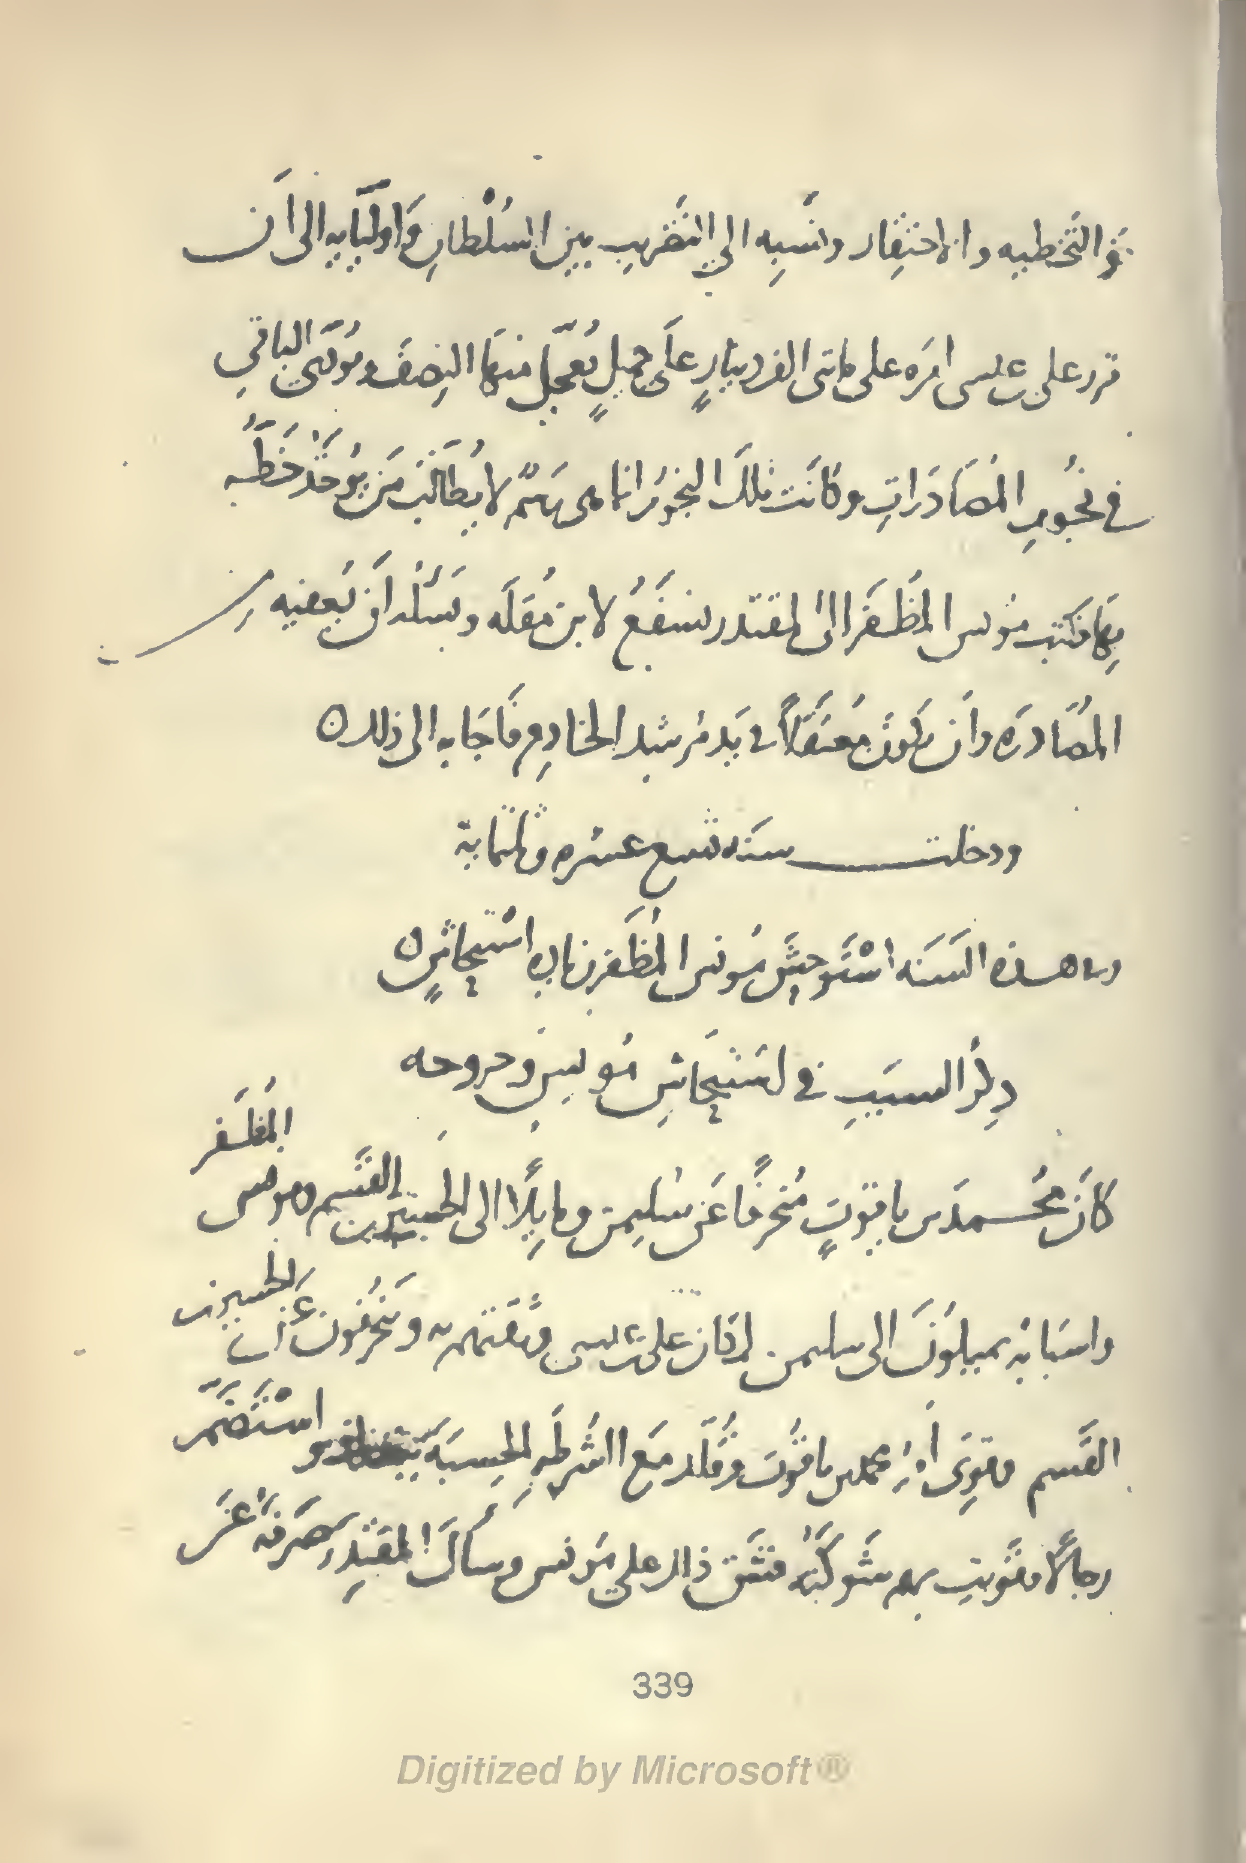 والتخطيه والاحتقار ونسبه الي التضريب بين السُلْطان واوليآيه الى ان
قرر علي بن عيسى امَره على مايتى الف دينارٍ علَى ان يُعجّل منهَا النِصفَ ويُودّي الباقي
في نُجُوم المُصَادَراتِ وكانَت تلكَ النجومُ انما هي رَسْم لا يُطالَبُ مَن يُوخَذُ خَطّه
بِهَا فكتب مؤنس المُظَفَر الىٰ المقتدر يشفَعُ لابن مُقلَه ويَسْئَلُه اَن يُعفيه مِن
المُصَادرَه واَن يكونَ مُعتَقَلاً في يَد مُرشد الخادِم فاَجَابه الى ذلك
ودخلت سنَه تسع عشره وثلثماية
وفى هذه السَنَه اسْتَوحَشَ مُونس المُظَفر زيادهَ اسْتيحاشٍ
ذِكْرُ السَبَبِ في استيحَاشِ مُونسٍ وخروجه
كانَ محُمد بن ياقوتٍ مُنحرفًا عَن سُليمن ومايِلًا الى الحسين بن القَسم ومونس المُظَفر
واسبابُه يميلوُنَ الى سليمن لمكان علي بن عيسى وثِقَتهم به وينحرفُون عَن الحسين بن
القَسم وقوِىَ امرُ محمد بن ياقُوت وقُلّد مَع الشُرطَه الحِسبَه واسْتَضَمَّ
رجالاً وقَويت بهم شَوكَتُه فشَق ذلك على مونس وسأَلَ المقتدِر صَرفَهُ عَن
339
Digitized by Microsoft®